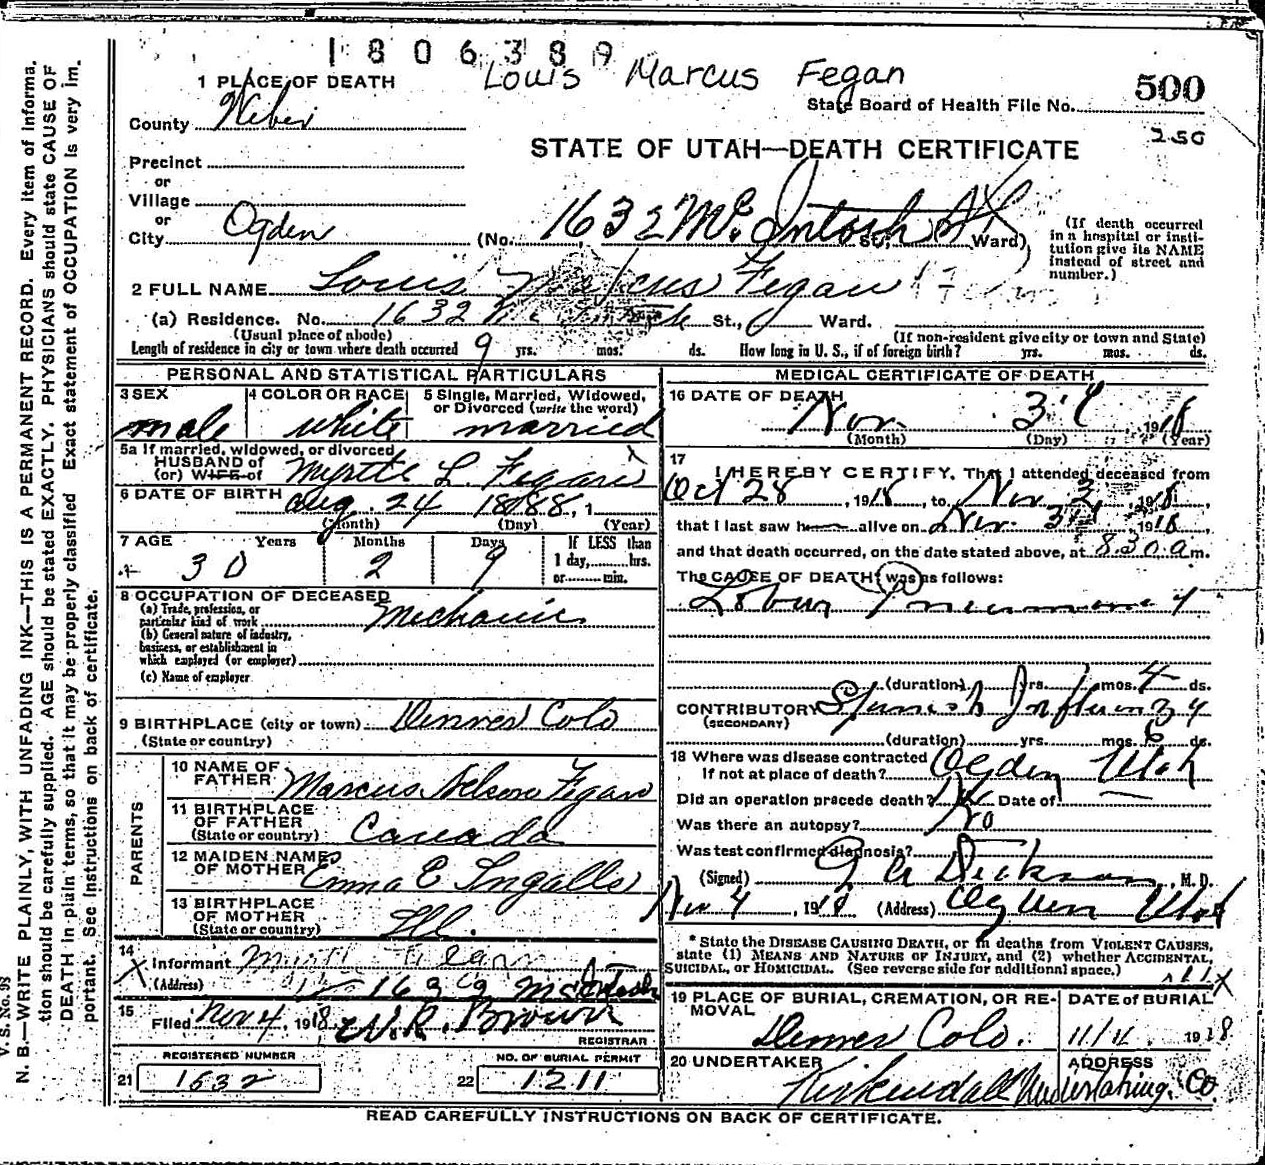 1806389
Louis Marcus Fegan
500
1 PLACE OF DEATH
State Board of Health File No.
County Weber
250
STATE OF UTAH—DEATH CERTIFICATE
Precinct
or
Village
or
City Ogden (No. 1632 Mc Intosh St St., Ward)
(If death occurred in a hospital or institution give its NAME instead of street and number.)
2 FULL NAME Louis Marcus Fegan
(a) Residence. No. 1632 St., Ward.
(Usual place of abode) (If non-resident give city or town and State)
Length of residence in city or town where death occurred 9 yrs. mos. ds. How long in U. S., if of foreign birth? yrs. mos. ds.
PERSONAL AND STATISTICAL PARTICULARS
3 SEX
male
4 COLOR OR RACE
white
5 Single, Married, Widowed, or Divorced (write the word)
married
5a If married, widowed, or divorced
HUSBAND of
(or) WIFE of Myrtle L. Fegan X
6 DATE OF BIRTH Aug. 24 1888, 1
(Month) (Day) (Year)
7 AGE Years Months Days If LESS than
30 2 9 1 day, hrs.
or min.
8 OCCUPATION OF DECEASED
(a) Trade, profession, or
particular kind of work Mechanic
(b) General nature of industry,
business, or establishment in
which employed (or employer)
(c) Name of employer
9 BIRTHPLACE (city or town) Denver Colo
(State or country)
PARENTS
10 NAME OF
FATHER Marcus Nelson Fegan
11 BIRTHPLACE
OF FATHER
(State or country) Canada
12 MAIDEN NAME
OF MOTHER Emma E Ingalls
13 BIRTHPLACE
OF MOTHER
(State or country) Ill.
14
X Informant
(Address)
15
Filed Nov 4, 1918 W.R. Brown
REGISTRAR
REGISTERED NUMBER
21 1632
NO. OF BURIAL PERMIT
22 1211
MEDICAL CERTIFICATE OF DEATH
16 DATE OF DEATH
Nov. 3rd, 1918
(Month) (Day) (Year)
17
I HEREBY CERTIFY, That I attended deceased from
Oct 28, 1918, to Nov 3, 1918,
that I last saw h alive on Nov. 3rd, 1918,
and that death occurred, on the date stated above, at 8 30 a m.
The CAUSE OF DEATH* was as follows:
Lobar Pneumonia
(duration) yrs. mos. 4 ds.
CONTRIBUTORY Spanish Influenza
(SECONDARY)
(duration) yrs. mos. 6 ds.
18 Where was disease contracted
if not at place of death? Ogden Utah
Did an operation precede death? No Date of
Was there an autopsy? No
Was test confirmed diagnosis?
(Signed) Dickson, M. D.
Nov 4, 1918 (Address) Ogden Utah
* State the DISEASE CAUSING DEATH, or in deaths from VIOLENT CAUSES,
state (1) MEANS AND NATURE OF INJURY, and (2) whether ACCIDENTAL,
SUICIDAL, or HOMICIDAL. (See reverse side for additional space.)
19 PLACE OF BURIAL, CREMATION, OR REMOVAL
Denver Colo.
DATE of BURIAL
1918
20 UNDERTAKER
Kirkendall Undertaking Co.
ADDRESS
READ CAREFULLY INSTRUCTIONS ON BACK OF CERTIFICATE.
V. S. No. 93
N. B.—WRITE PLAINLY, WITH UNFADING INK—THIS IS A PERMANENT RECORD. Every item of information should be carefully supplied. AGE should be stated EXACTLY. PHYSICIANS should state CAUSE OF DEATH in plain terms, so that it may be properly classified Exact statement of OCCUPATION is very important. See instructions on back of certificate.